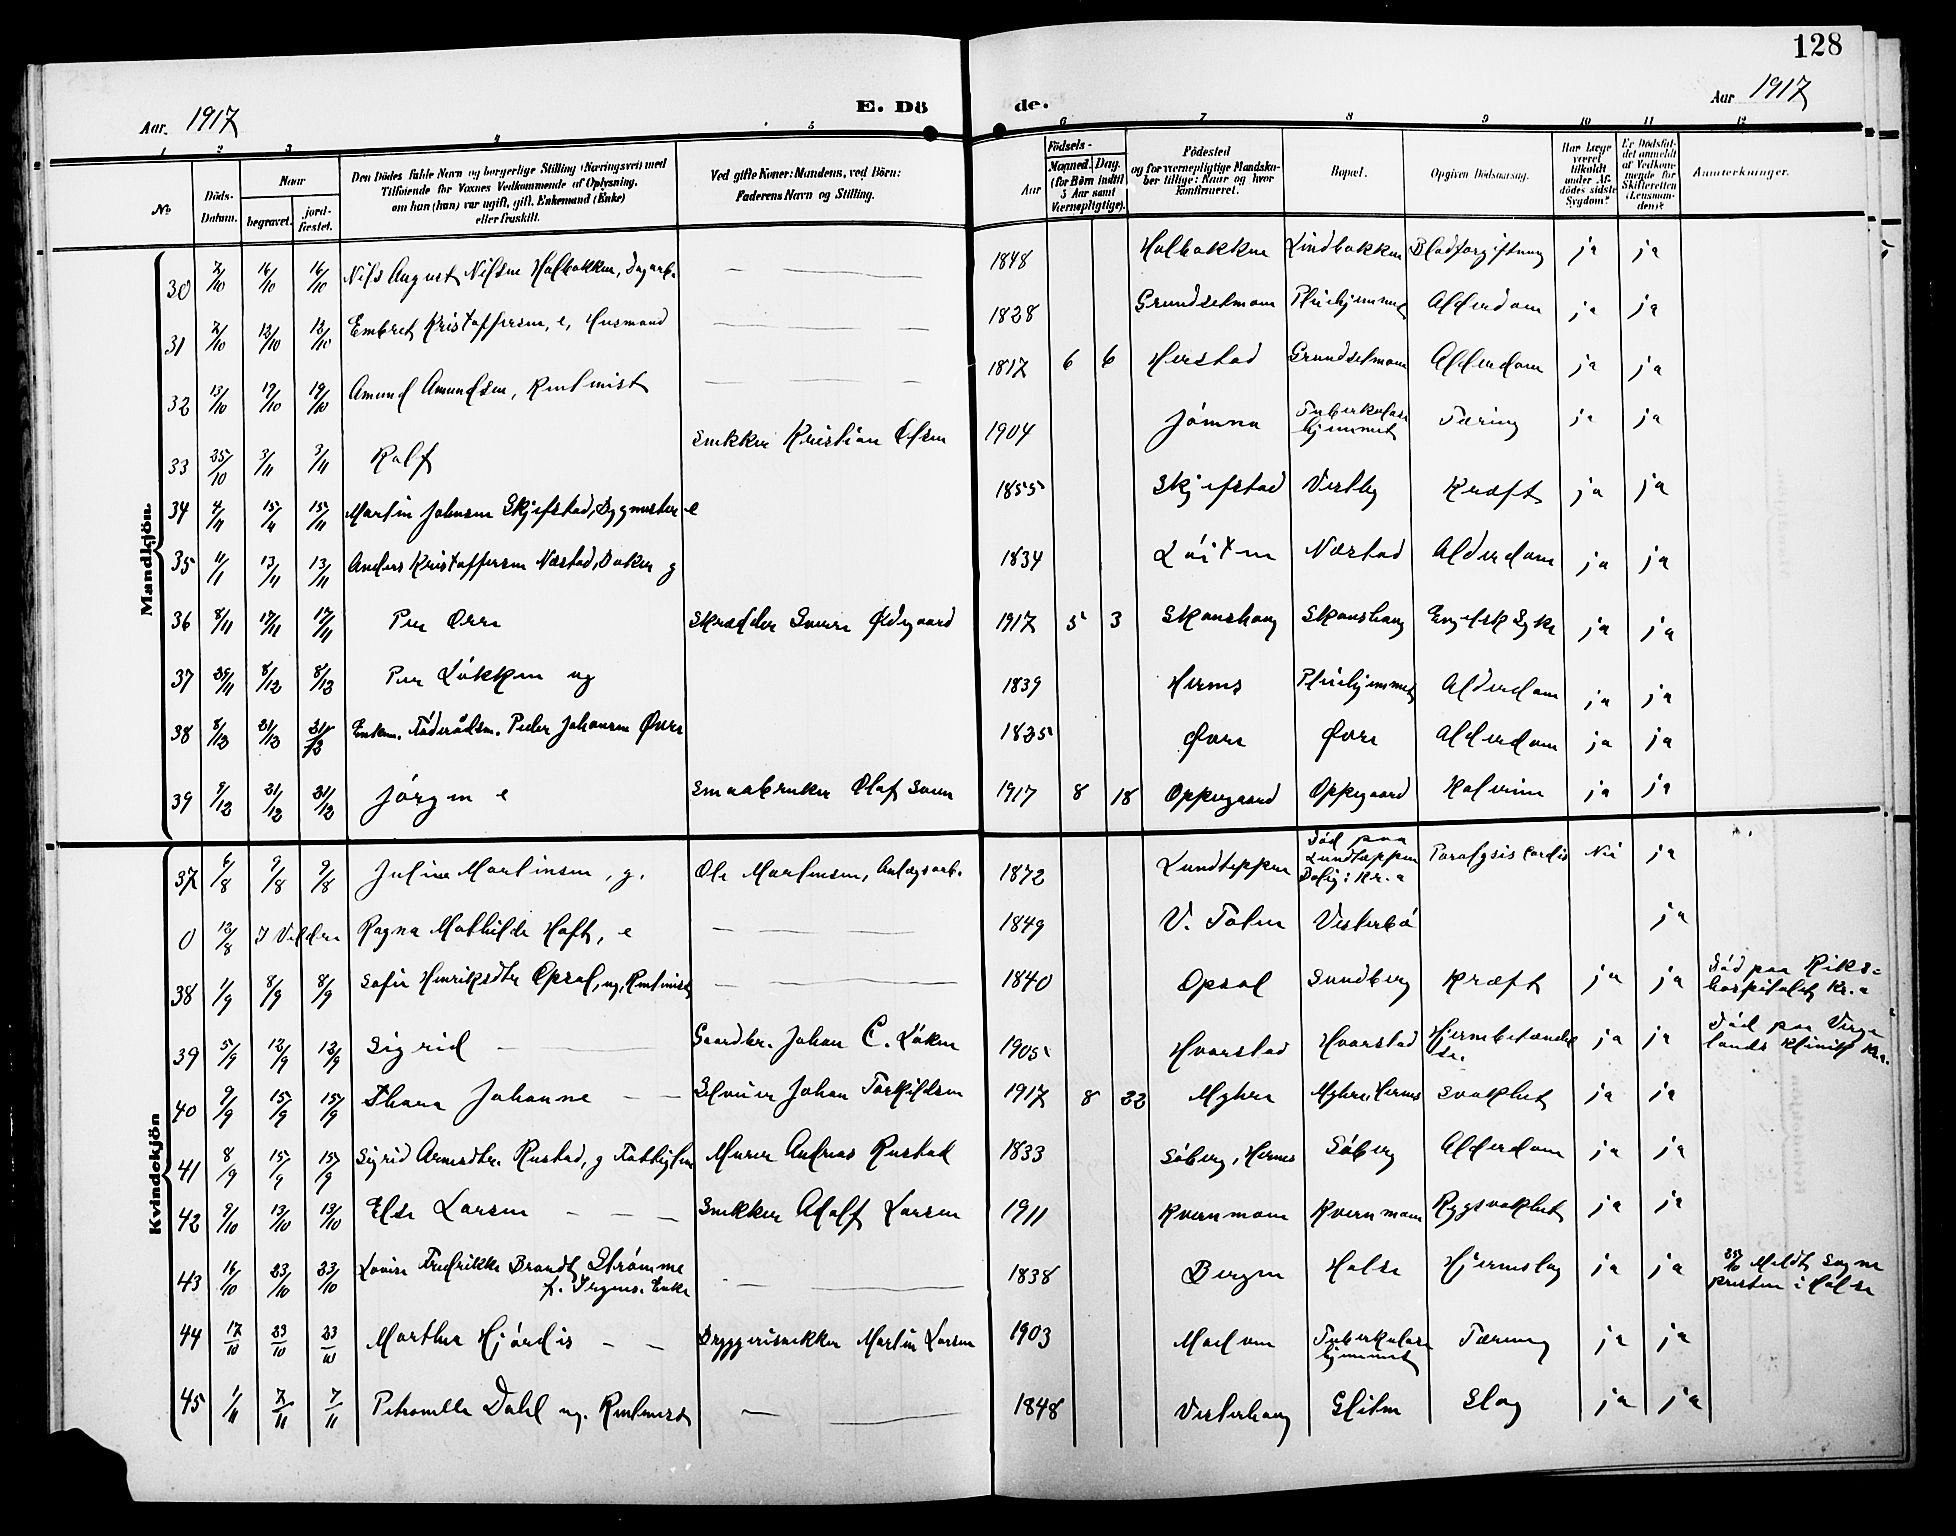 128
Aar. 1917
E. Dö
de.
Aar 1917
1 2 3 4 5 6 7 8 9 10 11 12
No
Döds-Datum.
Naar
begravet. jordfæstet.
Den Dödes fulde Navn og borgerlige Stilling (Næringsvei) med
Tilföiende for Voxnes Vedkommende af Oplysning,
om han (hun) var ugift, gift, Enkemand (Enke)
eller fraskilt.
Ved gifte Koner: Mandens, ved Börn:
Faderens Navn og Stilling.
Födsels-
Aar
Maaned. Dag.
(for Börn indtil
5 Aar samt
Værnepligtige).
Födested
og for værnepligtige Mandskaber tillige: Naar og hvor
konfirmeret.
Bopæl.
Opgiven Dödsaarsag.
Har Læge været tilkaldt under Afdödes sidste Sygdom?
Er Dödsfaldet anmeldt af Vedkommende for Skifteretten (Lensmanden)?
Anmærkninger.
Mandkjön.
30 7/10 16/10 16/10 Nils August Nilsen Holbakken, Dagarb. — — 1848 Holbakken Lindbakken Blodforgiftning ja ja
31 7/10 12/10 12/10 Embret Kristoffersen, e, Husmand — — 1828 Grundsetmoen Pleiehjemmet Alderdom ja ja
32 13/10 19/10 19/10 Amund Amundsen, Rentenist — — 1817 6 6 Herstad Grundsetmoen Alderdom ja ja
33 25/10 3/11 3/11 Rolf Snekker Kristian Olsen 1904 Jömna Tuberkulosehjemmet Tæring ja ja
34 4/11 15/11 15/11 Martin Johnsen Skjefstad, Bygmester e 1855 Skjefstad Vestby Kræft ja ja
35 11/1 13/11 13/11 Anders Kristoffersen Næstad, Baker g 1834 Löiten Næstad Alderdom ja ja
36 8/11 17/11 17/11 Per Orre Skrædder Sverre Ødegaard 1917 5 3 Skanshaug Skanshaug Engelsk Syke ja ja
37 29/11 8/12 8/12 Per Lökken ug 1839 Hernes Pleiehjemmet Alderdom ja ja
38 8/12 21/12 21/12 Enkem. Föderådsm. Peder Johansen Øvre 1835 Øvre Øvre Alderdom ja ja
39 9/12 21/12 21/12 Jörgen e Smaabruker Olaf Soen 1917 8 18 Oppegaard Oppegaard Kolerine ja ja
Kvindekjön
37 6/8 9/8 9/8 Juline Martinsen, g. Ole Martinsen, Anlægsarb. 1872 Lundteppen Död paa Lundtæppen Bolig: Kr.a Paralysis cordis Nei ja
0 12/8 I Veldre Ragna Mathilde Hoft, e — — 1849 V. Toten Vesterbö ja
38 1/9 8/9 8/9 Sofie Henriksdtr Opsal, ug, Rentenist — — 1840 Opsal Sundberg Kræft ja ja Död paa Rikshospitalet Kr.a
39 5/9 12/9 12/9 Sigrid — Gaardbr. Johan C. Löken 1905 Hvarstad Hvarstad Hjernebetændelse. ja ja Död paa Vergelands klinik Kr.a.
40 9/9 15/9 15/9 Thora Johanne — — Selveier Johan Torkildsen 1917 8 22 Myhre Myhre, Hernes Svakhet ja ja
41 8/9 15/9 15/9 Sigrid Arnesdtr. Rustad, g Fattiglem Murer Andreas Rustad 1833 Söberg, Hernes Söberg Alderdom ja ja
42 9/10 13/10 13/10 Else Larsen — — — Snekker Adolf Larsen 1911 Kvernmoen Kvernmoen Rygsvakhet ja ja
43 16/10 23/10 23/10 Lovise Fredrikke Brandt Strömme f. Irgens. Enke — — 1838 Bergen Halse Hjerneslag ja ja Meldt Sogne presten i Halse
44 17/10 23/10 23/10 Marthea Hjördis — — Bryggerisnekker Martin Larsen 1903 Modum Tuberkulosehjemmet Tæring ja ja
45 1/11 7/11 7/11 Petronelle Dahl ug. Rentenist — — 1848 Vesterhaug Glitm Slag ja ja